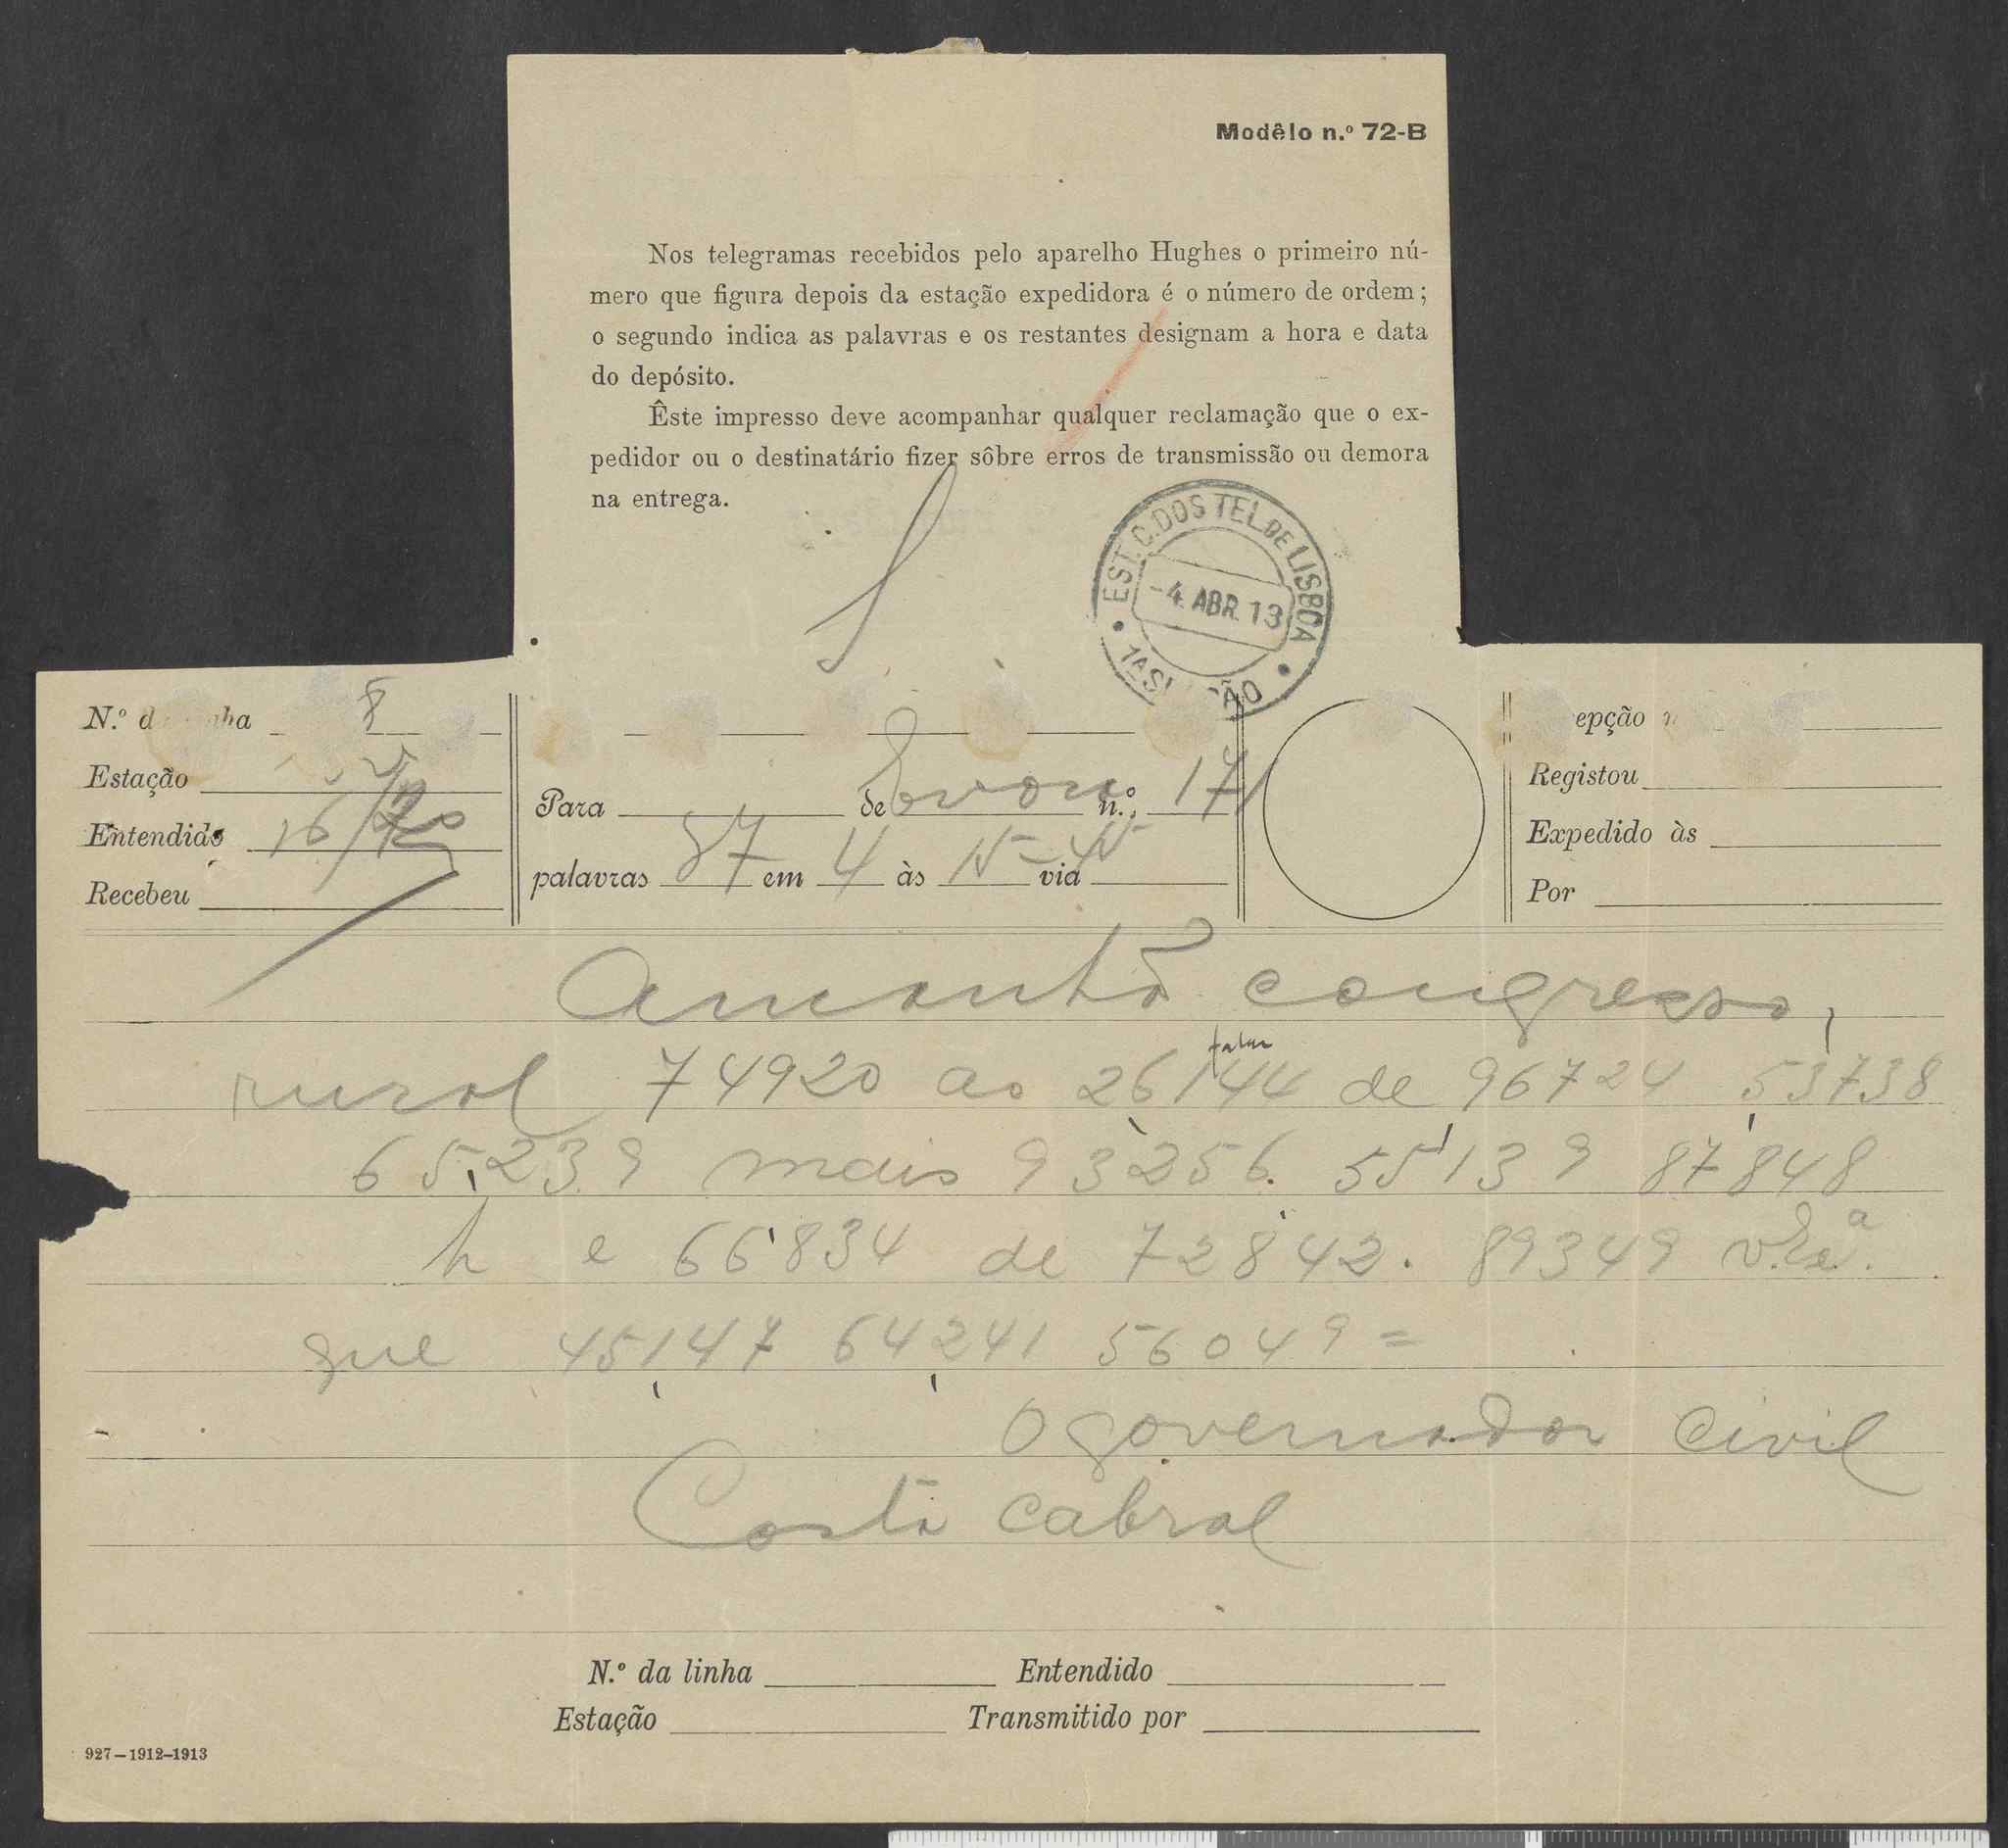 Modêlo n.º 72-B
Nos telegramas recebidos pelo aparelho Hughes o primeiro nú-
mero que figura depois da estação expedidora é o número de ordem;
o segundo indica as palavras e os restantes designam a hora e data
do depósito.
Êste impresso deve acompanhar qualquer reclamação que o ex-
pedidor ou o destinatário fizer sôbre erros de transmissão ou demora
na entrega.
EST. C. DOS TEL DE LISBOA
-4. ABR. 13
N.º d nha 8
Estação
Entendido 16/20
Recebeu
Para de Evora n.º 171
palavras 87 em 4 às 15-45 via
epção
Registou
Expedido às
Por
Amanhã congresso,
falar
rural 74920 ao 26144 de 96724 53738
65239 mais 93256. 55139 87848
h e 66834 de 72842. 89349 v. Exª.
que 45147 64241 56049=
O governador civil
Costa Cabral
N.º da linha Entendido
Estação Transmitido por
927-1912-1913